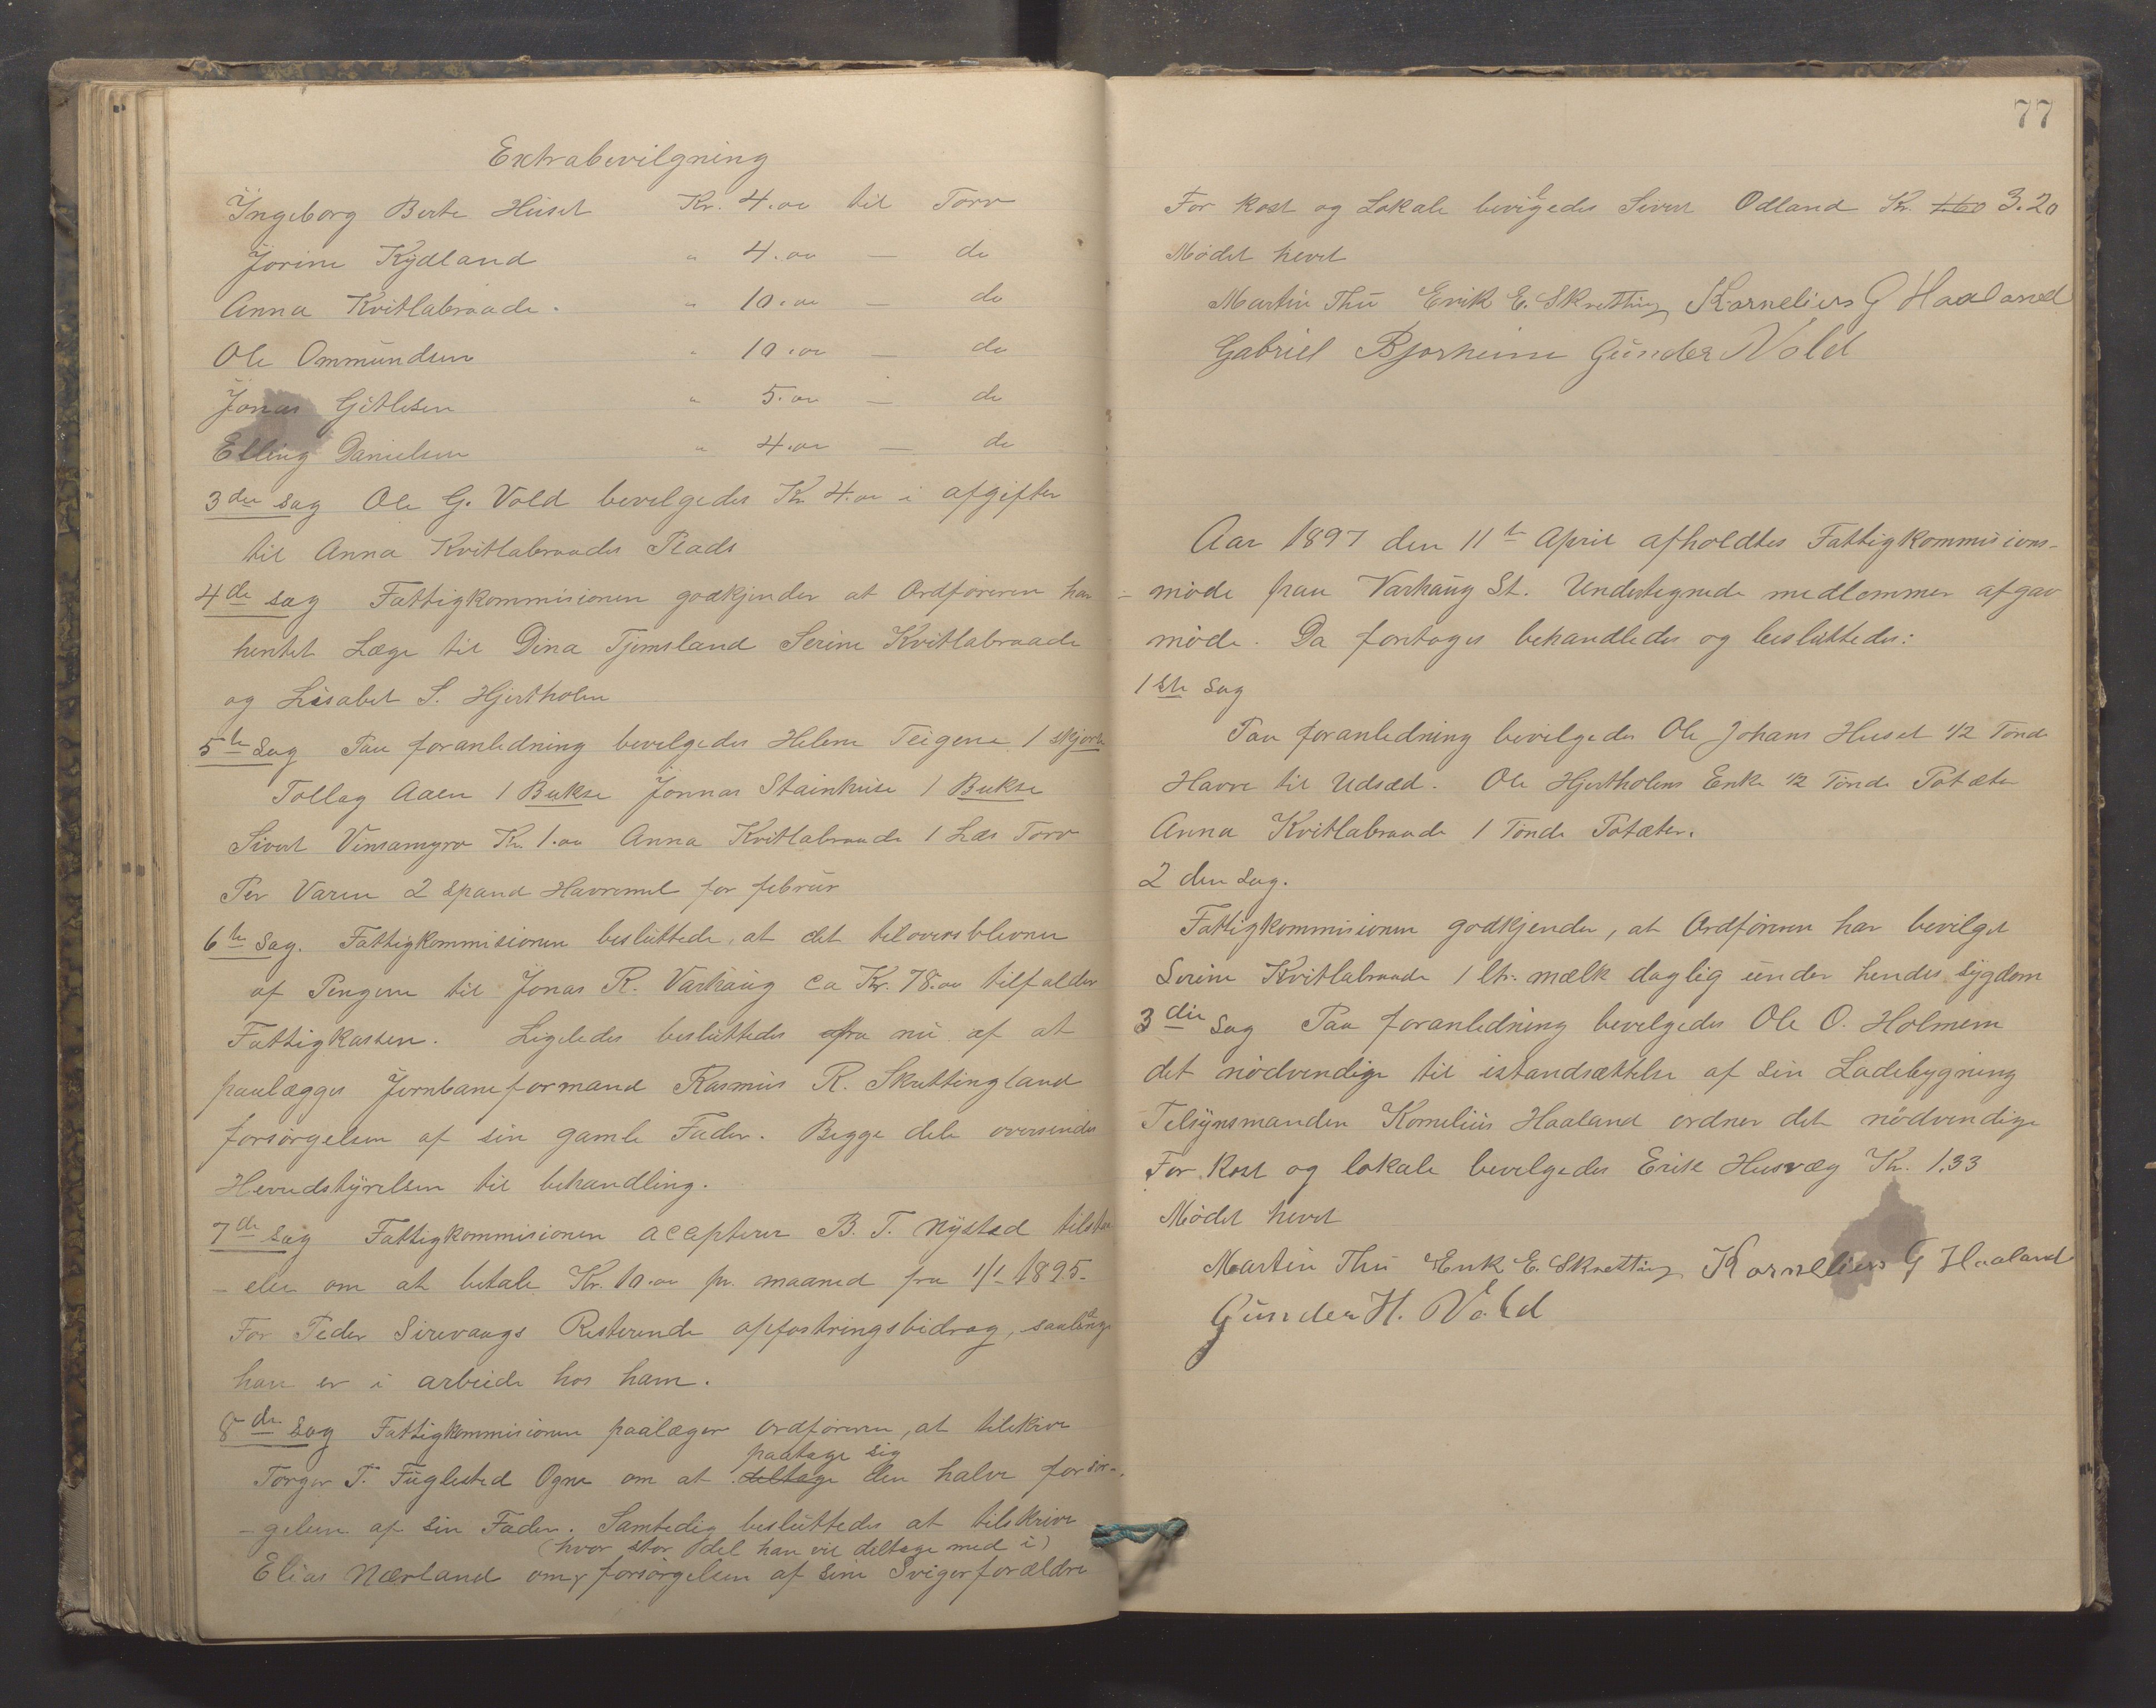 Extrabevilgning
Ingeborg Berte Huset Kr. 4.oo til Torv
Jorine Kydland " 4.oo — do
Anna Kvitlabraade. " 10.oo — do
Ole Ommundsen " 10.oo — do
Jonas Gitlesen " 5.oo — do
Elling Danielsen " 4.oo — do
3die sag Ole G. Vold bevelgedes Kr 4.oo i afgifter
til Anna Kvitlabraades Plads
4de sag Fattigkommisionen godkjender at Ordføreren har
hentet Læge til Dina Tjemsland Serine Kvitlabraade
og Lisabet S. Hjertholen
5te Sag Paa foranledning bevelgedes Helene Teigene 1 skjorte
Tollag Aaen 1 Bukse Jonnas Stainhuse 1 Bukse
Sivert Vensamyro Kr. 1.oo Anna Kvitlabraade 1 Læs Torv
Per Varen 2 spand Havremel for februr
6te Sag. Fattigkommisionen besluttede, at det teloversblevne
af Pengene til Jonas R. Varhaug ca Kr. 78.oo tilfalder
Fattigkassen. Ligeledes besluttedes afra nu af at
paalægges Jernbaneformand Rasmus R. Skrettingland
forsørgelsen af sin gamle Fader. Begge dele oversendes
Herredstyrelsen til behandling.
7de sag Fattigkommisionen accepterer B. T. Nysted tilsta
- else om at betale Kr. 10.oo pr. maaned fra 1/1 1895-
For Peder Sirevaags Resterende opfostringsbidrag, saalænge
han er i arbeide hos ham.
8de sag Fattigkommisionen paalægger ordføreren, at tilskrive
paatage sig
Torger T. Fuglested Ogne om at deltage den halve forsør-
-gelsen af sin Fader. Samtedig besluttedes at tilskrive
(hvor stor del han vil deltage med i)
Elias Nærland om forsørgelsen af sine Svigerforældre
77
For kost og Lokale bevilgedes Sivert Odland Kr. 1.60 3.20
Mødet hevet
Martin Thu Erik E. Skretting Kornelius G Haaland
Gabriel Bjorheim Gunder Vold
Aar 1897 den 11te April afholdtes Fattigkommisions-
- møde paa Varhaug St. Undertegnede medlemmer afgav
møde. Da foretoges behandledes og besluttedes:
1ste Sag
Paa foranledning bevilgedes Ole Johans Huset 1/2 Tønde
Havre til Udsæd. Ole Hjertholens Enke 1/2 Tønde Potæter
Anna Kvitlabraade 1 Tønde Potæter.
2 den Sag.
Fattigkommisionen godkjender, at Ordføreren har bevilget
Serine Kvitlabraade 1 ltr. mælk daglig under hendes sygdom
3die Sag Paa foranledning bevelgedes Ole O. Holmene
det nødvendige til istandsættelse af sin Ladebygning
Telsynsmanden Kornelius Haaland ordner det nødvendige
For Kost og lokale bevelgedes Erik Husvæg Kr. 1.33
Mødet hevet
Martin Thu Erik E. Skretting Kornelius G Haaland
Gunder H. Vold